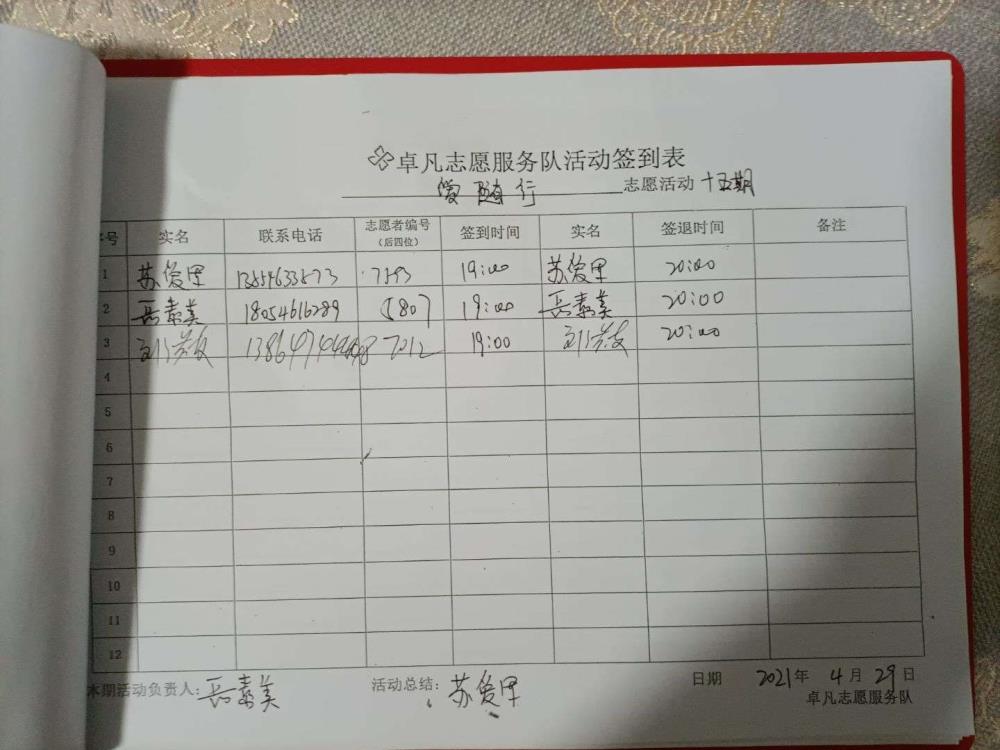 卓凡志愿服务队活动签到表
爱随行 志愿活动 十五期
序号 实名 联系电话 志愿者编号（后四位） 签到时间 实名 签退时间 备注
1 苏爱里 7593 19:00 苏爱里 20:00
2 岳素美 18054616289 5807 19:00 岳素美 20:00
3 7012 19:00 20:00
4
5
6
7
8
9
10
11
12
本期活动负责人：岳素美 活动总结：苏爱里 日期 2021年4月29日
卓凡志愿服务队